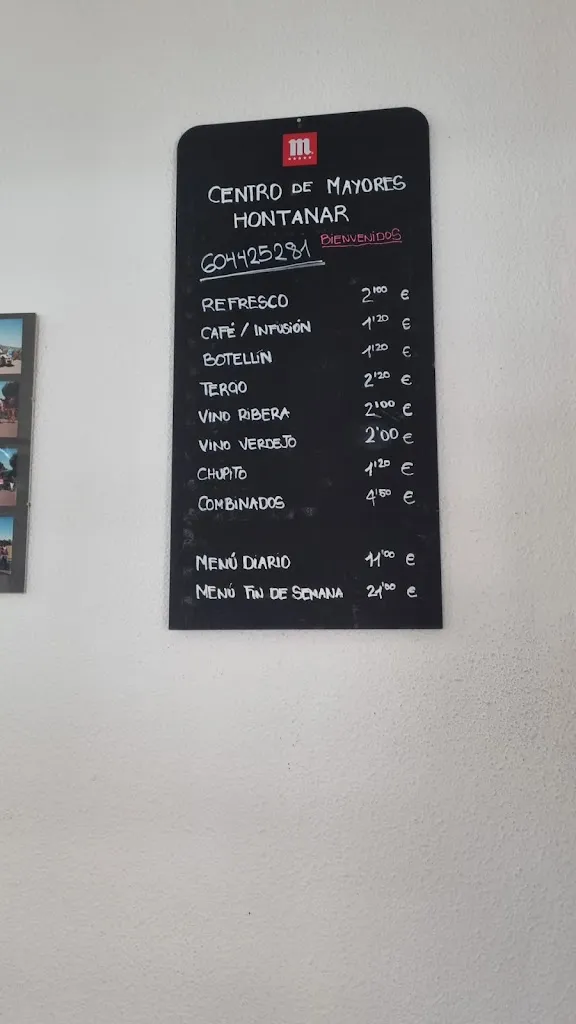 m
CENTRO DE MAYORES
HONTANAR
BIENVENIDOS
604425281
REFRESCO 2'00 €
CAFÉ / INFUSIÓN 1'20 €
BOTELLÍN 1'20 €
TERCIO 2'20 €
VINO RIBERA 2'00 €
VINO VERDEJO 2'00 €
CHUPITO 1'20 €
COMBINADOS 4'50 €
MENÚ DIARIO 11'00 €
MENÚ FIN DE SEMANA 21'00 €